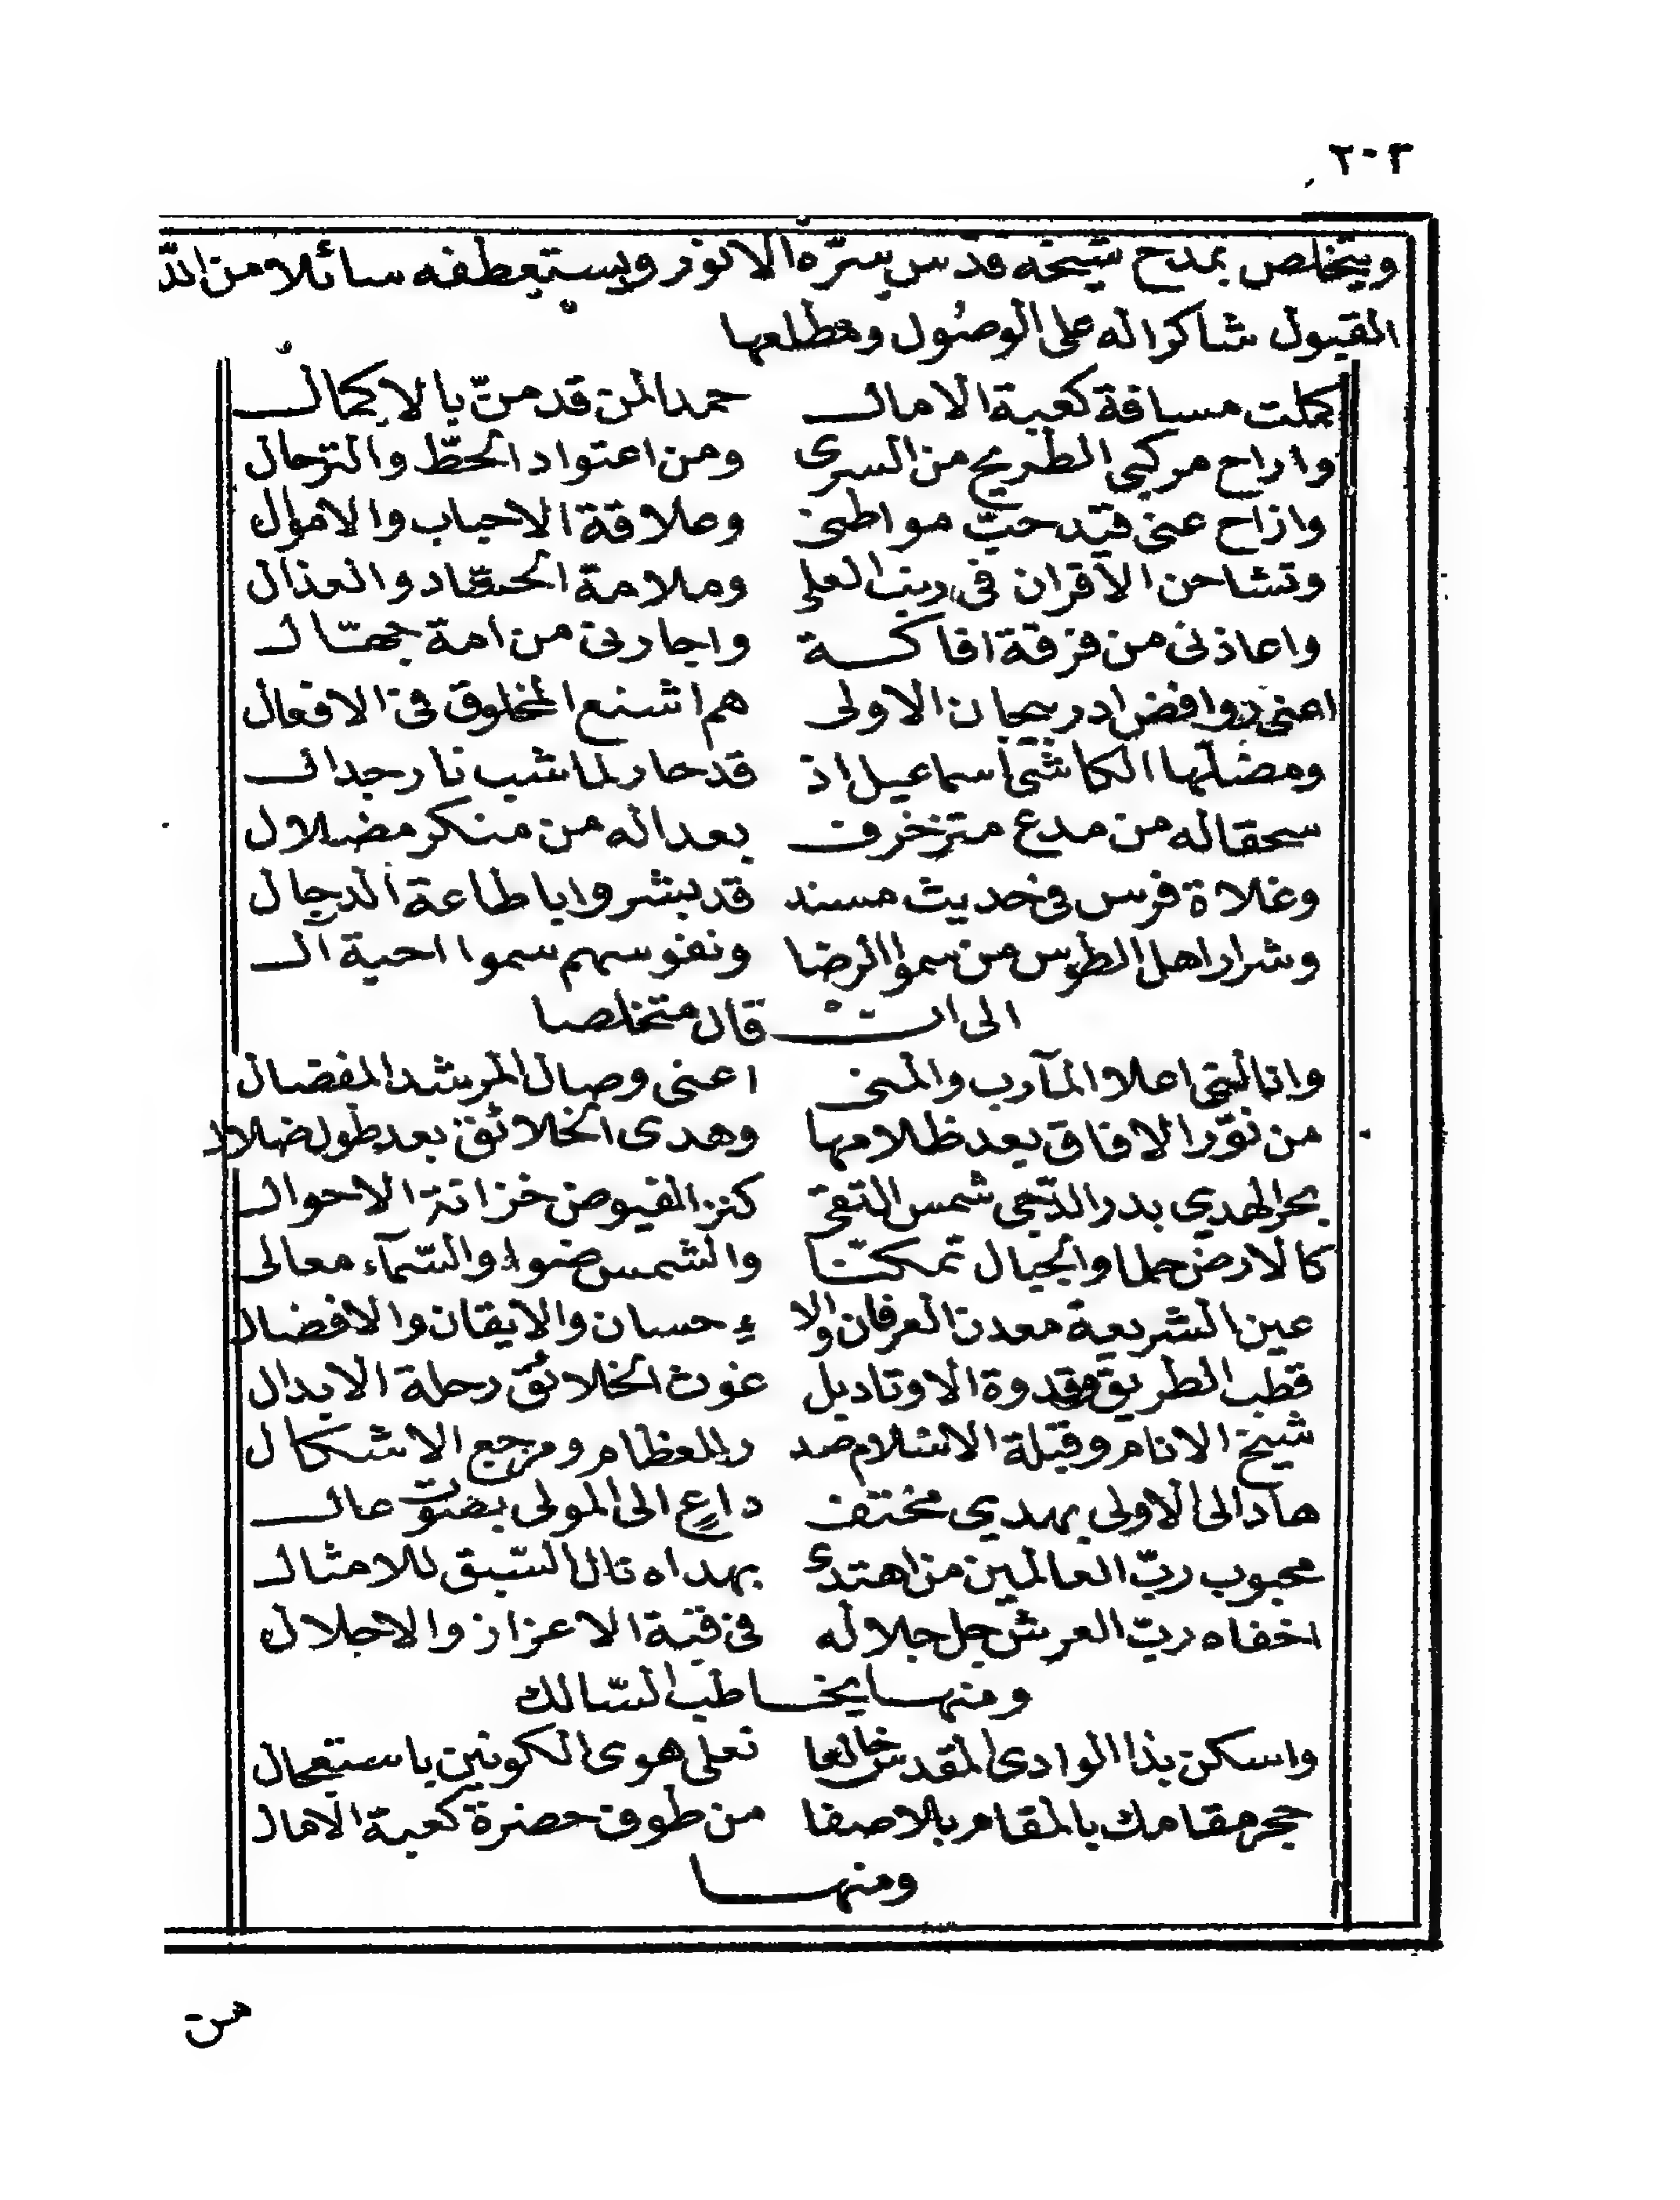 ٢٠٢
ويتخلص بمدح شيخه قدس سرّه الانور ويستعطفه سائلا من الله
القبول شاكرا له على الوصول ومطلعها
كملت مسافة كعبة الامال حمدا لمن قد منّ بالاكمال
واراح مركبى الطريح من السرى ومن اعتواد الحطّ والترحال
وازاح عنى قيد حبّ مواطنى وعلاقة الاحباب والاموال
وتشاحن الاقران فى رتب العلى وملامة الحسّاد والعذال
واعاذنى من فرقة افاكة واجارنى من امة جهّال
اعنى روافض ادربيجان الاولى هم اشنع المخلوق فى الافعال
ومضلها الكاشى اسماعيل اذ قد حار لما شب نار جدال
سحقا له من مدع متزخرف بعدا له من منكر مضلال
وغلاة فرس فى حديث مسند قد بشروا باطاعة الدجال
وشرار اهل الطوس من سموا الرضا ونفوسهم سموا احبة آل
الى ان قال متخلصا
وانالنى اعلا المآرب والمنى اعنى وصال المرشد المفضال
من نوّر الافاق بعد ظلامها وهدى الخلائق بعد طول ضلال
بحر الهدي بدر الدّجى شمس التقى كنز الفيوض خزانة الاحوال
كالارض حلما والجبال تمكنّا والشمس ضوءا والسّمآء معالى
عين الشريعة معدن العرفان والا ء حسان والايقان والافضال
قطب الطريق وقدوة الاوتاد بل غوث الخلائق رحلة الابدال
شيخ الانام وقبلة الاسلام صد ر للعظام ومرجع الاشكال
هاد الى الاولى بهدي مختف داعٍ الى المولى بصوت عال
محبوب ربّ العالمين من اهتدى بهداه نال السّبق للامثال
اخفاه ربّ العرش جل جلاله فى قبة الاعزاز والاجلال
ومنها يخاطب السّالك
واسكن بذا الوادى المقدس خالعا نعلى هوى الكونين باستعجال
حجر مقامك بالمقام بلا صفا من طوف حضرة كعبة الامال
ومنها
من